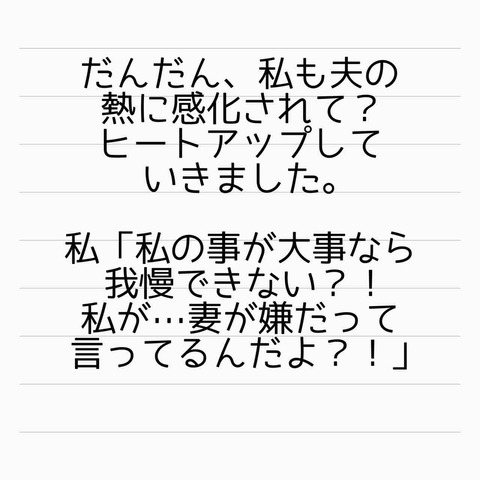 だんだん、私も夫の
熱に感化されて？
ヒートアップして
いきました。
私「私の事が大事なら
我慢できない？！
私が…妻が嫌だって
言ってるんだよ？！」